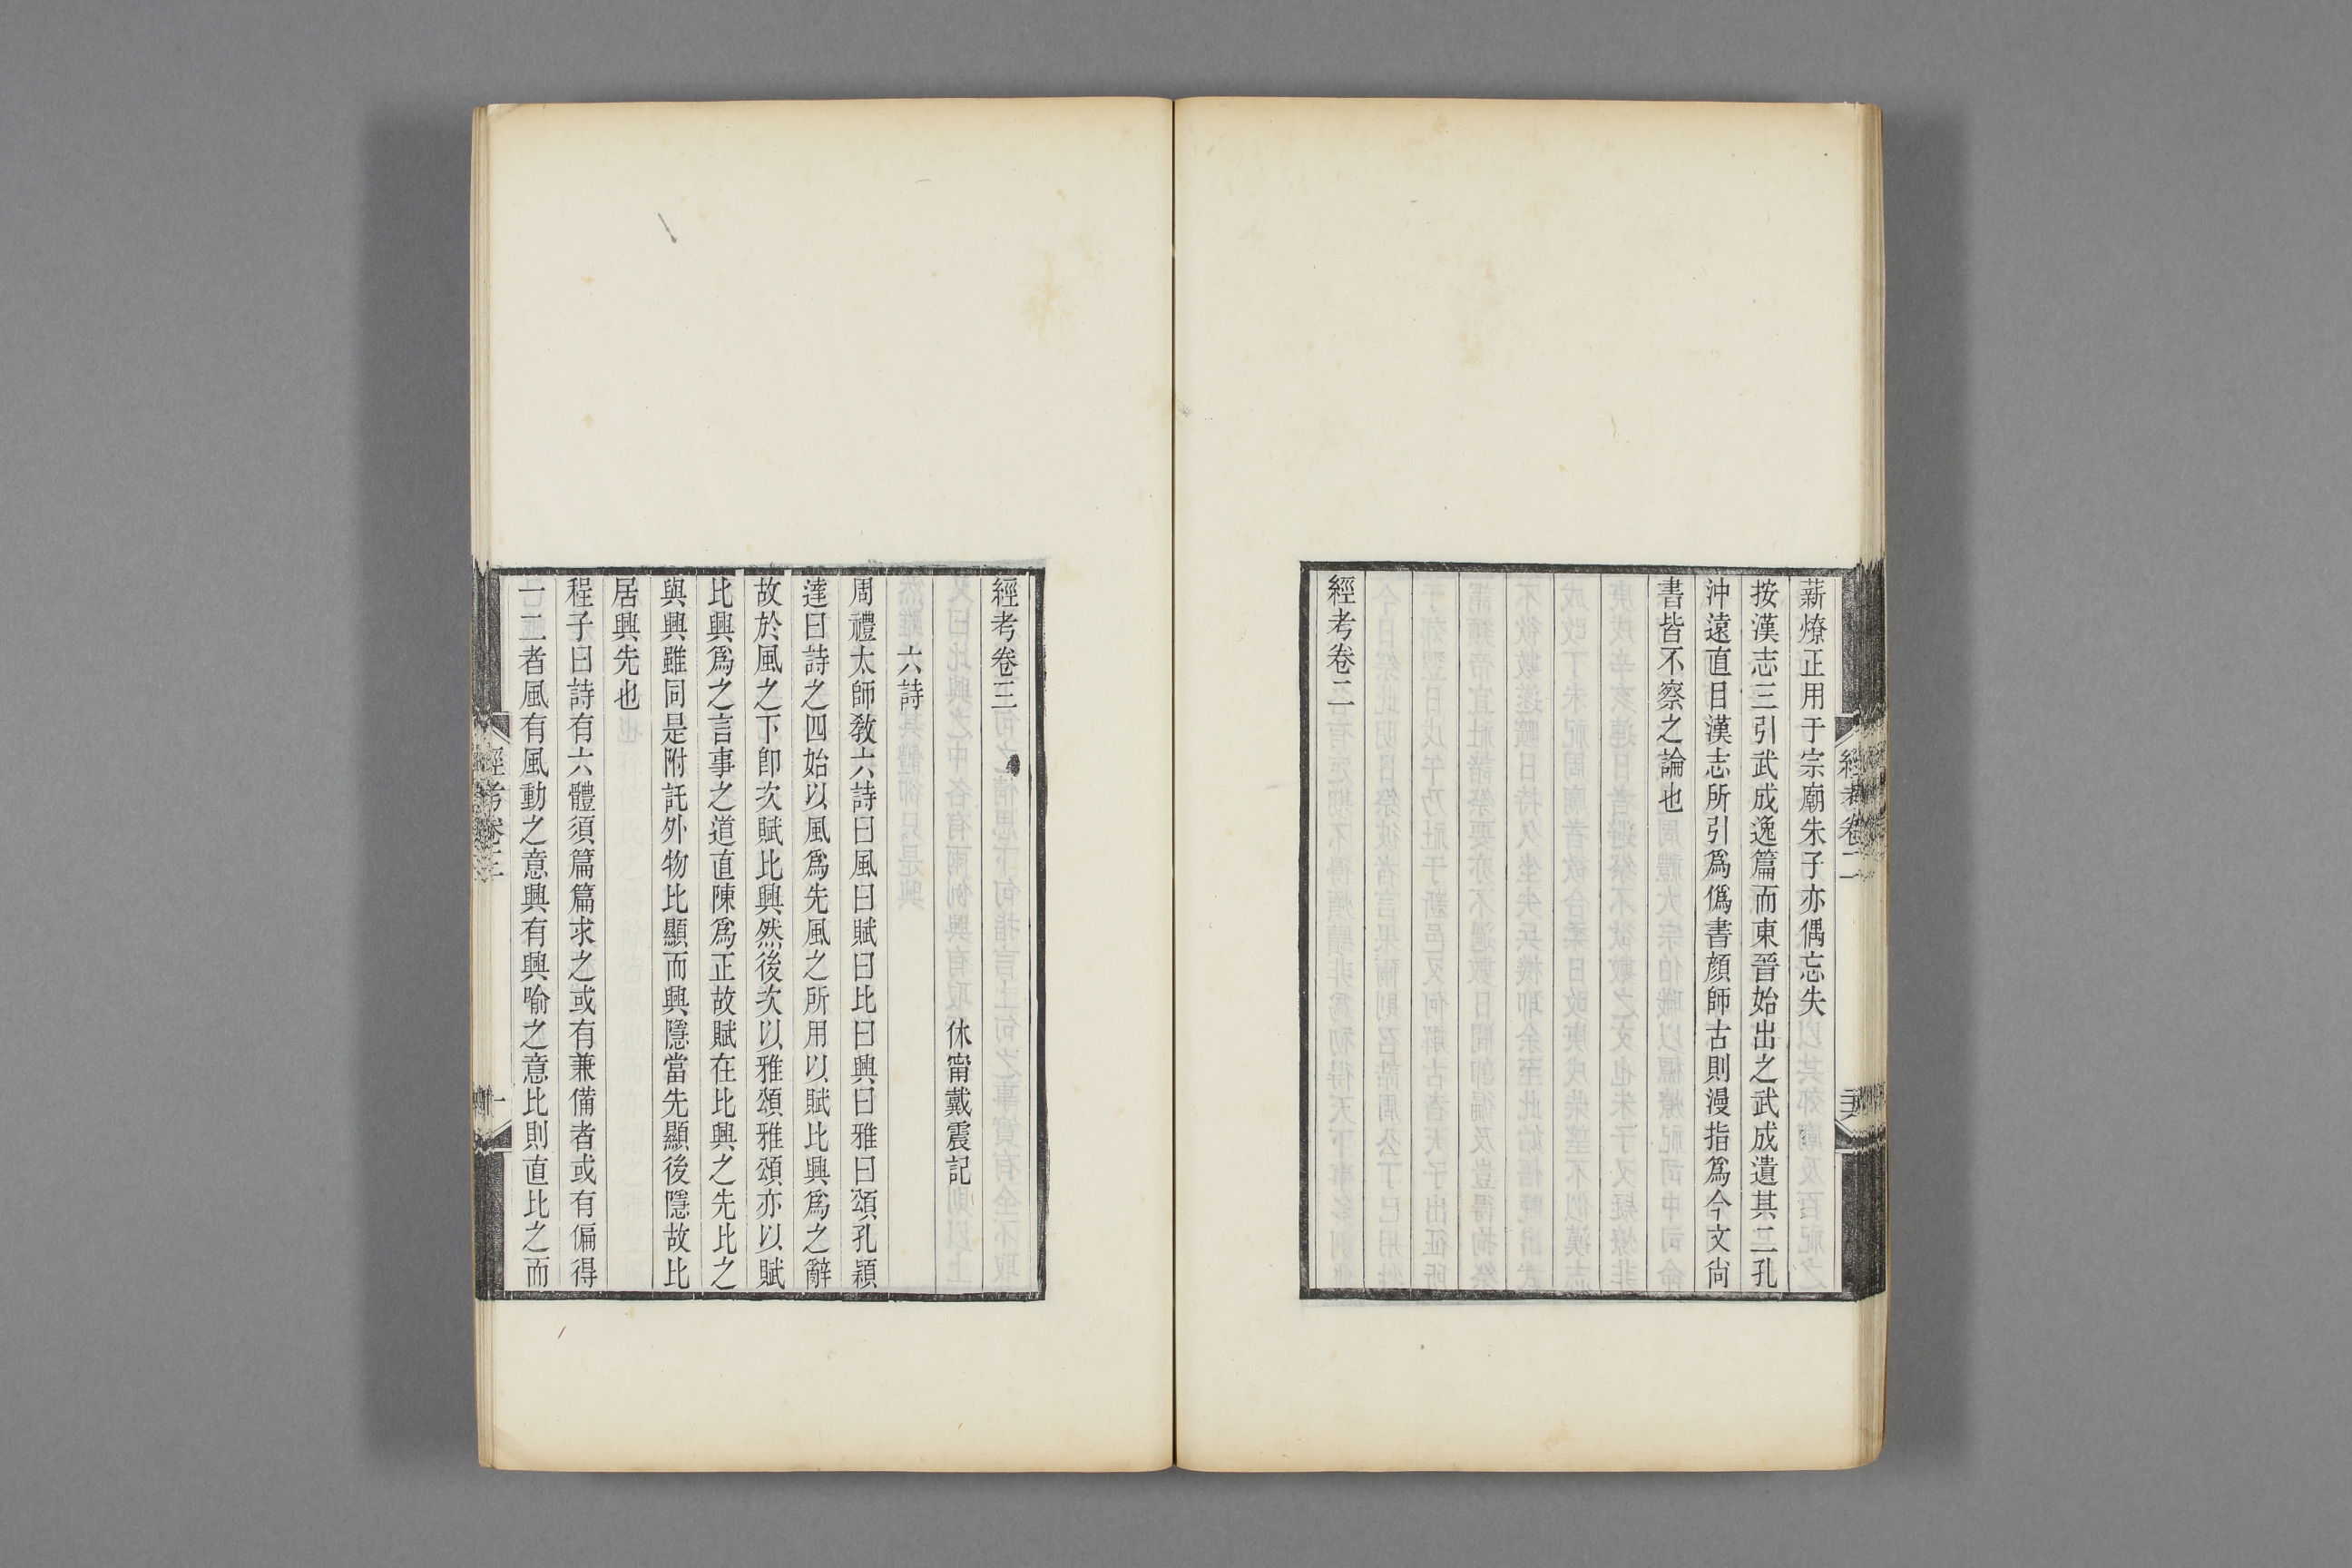 薪燎正用于宗廟朱子亦偶忘失
按漢志三引武成逸篇而東晉始出之武成遺其二孔
沖遠直目漢志所引爲僞書顏師古則漫指爲今文尙
書皆不察之論也
經考卷二
經考卷二
經考卷三
休甯戴震記
六詩
周禮太師敎六詩曰風曰賦曰比曰興曰雅曰頌孔穎
達曰詩之四始以風爲先風之所用以賦比興爲之辭
故於風之下卽次賦比興然後次以雅頌雅頌亦以賦
比興爲之言事之道直陳爲正故賦在比興之先比之
與興雖同是附託外物比顯而興隱當先顯後隱故比
居興先也
程子曰詩有六體須篇篇求之或有兼備者或有偏得
一二者風有風動之意興有興喻之意比則直比之而
經考卷三
一